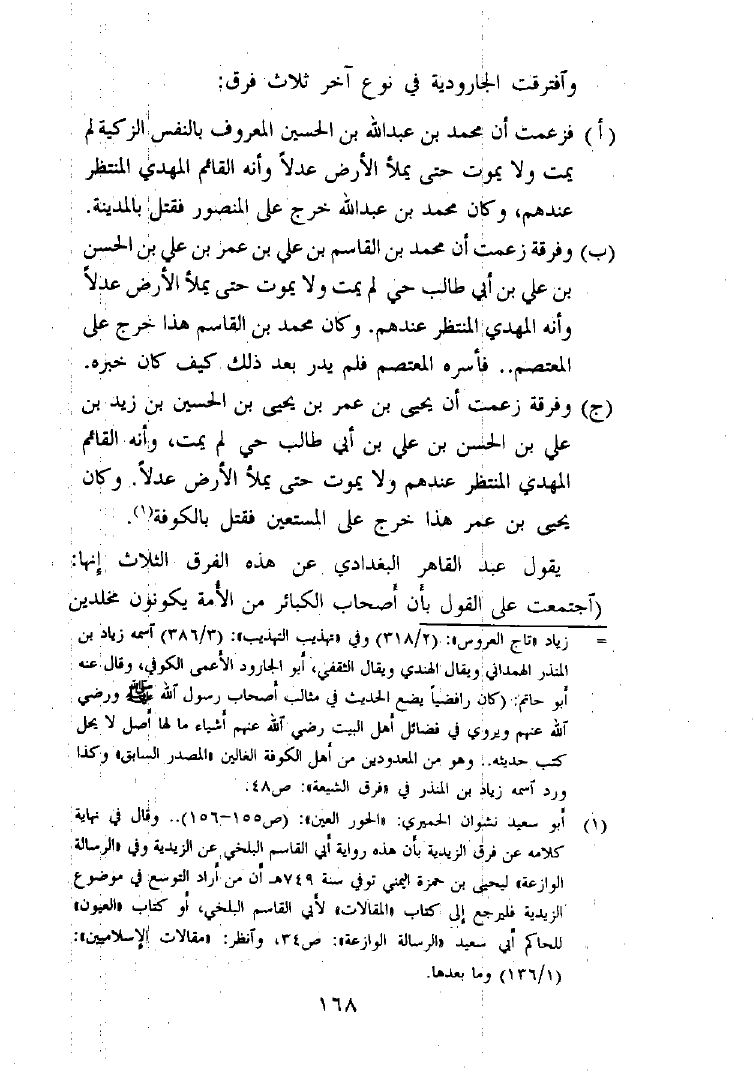 وٱفترقت الجارودية في نوع آخر ثلاث فرق:
(أ) فزعمت أن محمد بن عبدالله بن الحسين المعروف بالنفس الزكية لم
يمت ولا يموت حتى يملأ الأرض عدلاً وأنه القائم المهدي المنتظر
عندهم، وكان محمد بن عبدالله خرج على المنصور فقتل بالمدينة.
(ب) وفرقة زعمت أن محمد بن القاسم بن علي بن عمر بن علي بن الحسن
بن علي بن أبي طالب حي لم يمت ولا يموت حتى يملأ الأرض عدلاً
وأنه المهدي المنتظر عندهم. وكان محمد بن القاسم هذا خرج على
المعتصم.. فأسره المعتصم فلم يدر بعد ذلك كيف كان خبره.
(ج) وفرقة زعمت أن يحيى بن عمر بن يحيى بن الحسين بن زيد بن
علي بن الحسن بن علي بن أبي طالب حي لم يمت، وأنه القائم
المهدي المنتظر عندهم ولا يموت حتى يملأ الأرض عدلاً. وكان
يحيى بن عمر هذا خرج على المستعين فقتل بالكوفة(١).
يقول عبد القاهر البغدادي عن هذه الفرق الثلاث إنها:
(ٱجتمعت على القول بأن أصحاب الكبائر من الأمة يكونون مخلدين
= زياد «تاج العروس»: (٣١٨/٢) وفي «تهذيب التهذيب»: (٣٨٦/٣) ٱسمه زياد بن
المنذر الهمداني ويقال الهندي ويقال الثقفي، أبو الجارود الأعمى الكوفي، وقال عنه
أبو حاتم: (كان رافضياً يضع الحديث في مثالب أصحاب رسول الله ﷺ ورضي
ٱلله عنهم ويروي في فضائل أهل البيت رضي ٱلله عنهم أشياء ما لها أصل لا يحل
كتب حديثه.. وهو من المعدودين من أهل الكوفة الغالين «المصدر السابق» وكذا
ورد ٱسمه زياد بن المنذر في «فرق الشيعة»: ص٤٨.
(١) أبو سعيد نشوان الحميري: «الحور العين»: (ص١٥٥-١٥٦).. وقال في نهاية
كلامه عن فرق الزيدية بأن هذه رواية أبي القاسم البلخي عن الزيدية وفي «الرسالة
الوازعة» ليحيى بن حمزة اليمني توفي سنة ٧٤٩هـ أن من أراد التوسع في موضوع
الزيدية فليرجع إلى كتاب «المقالات» لأبي القاسم البلخي، أو كتاب «العيون»
للحاكم أبي سعيد «الرسالة الوازعة»: ص٣٤، وٱنظر: «مقالات الإسلاميين»:
(١٣٦/١) وما بعدها.
١٦٨